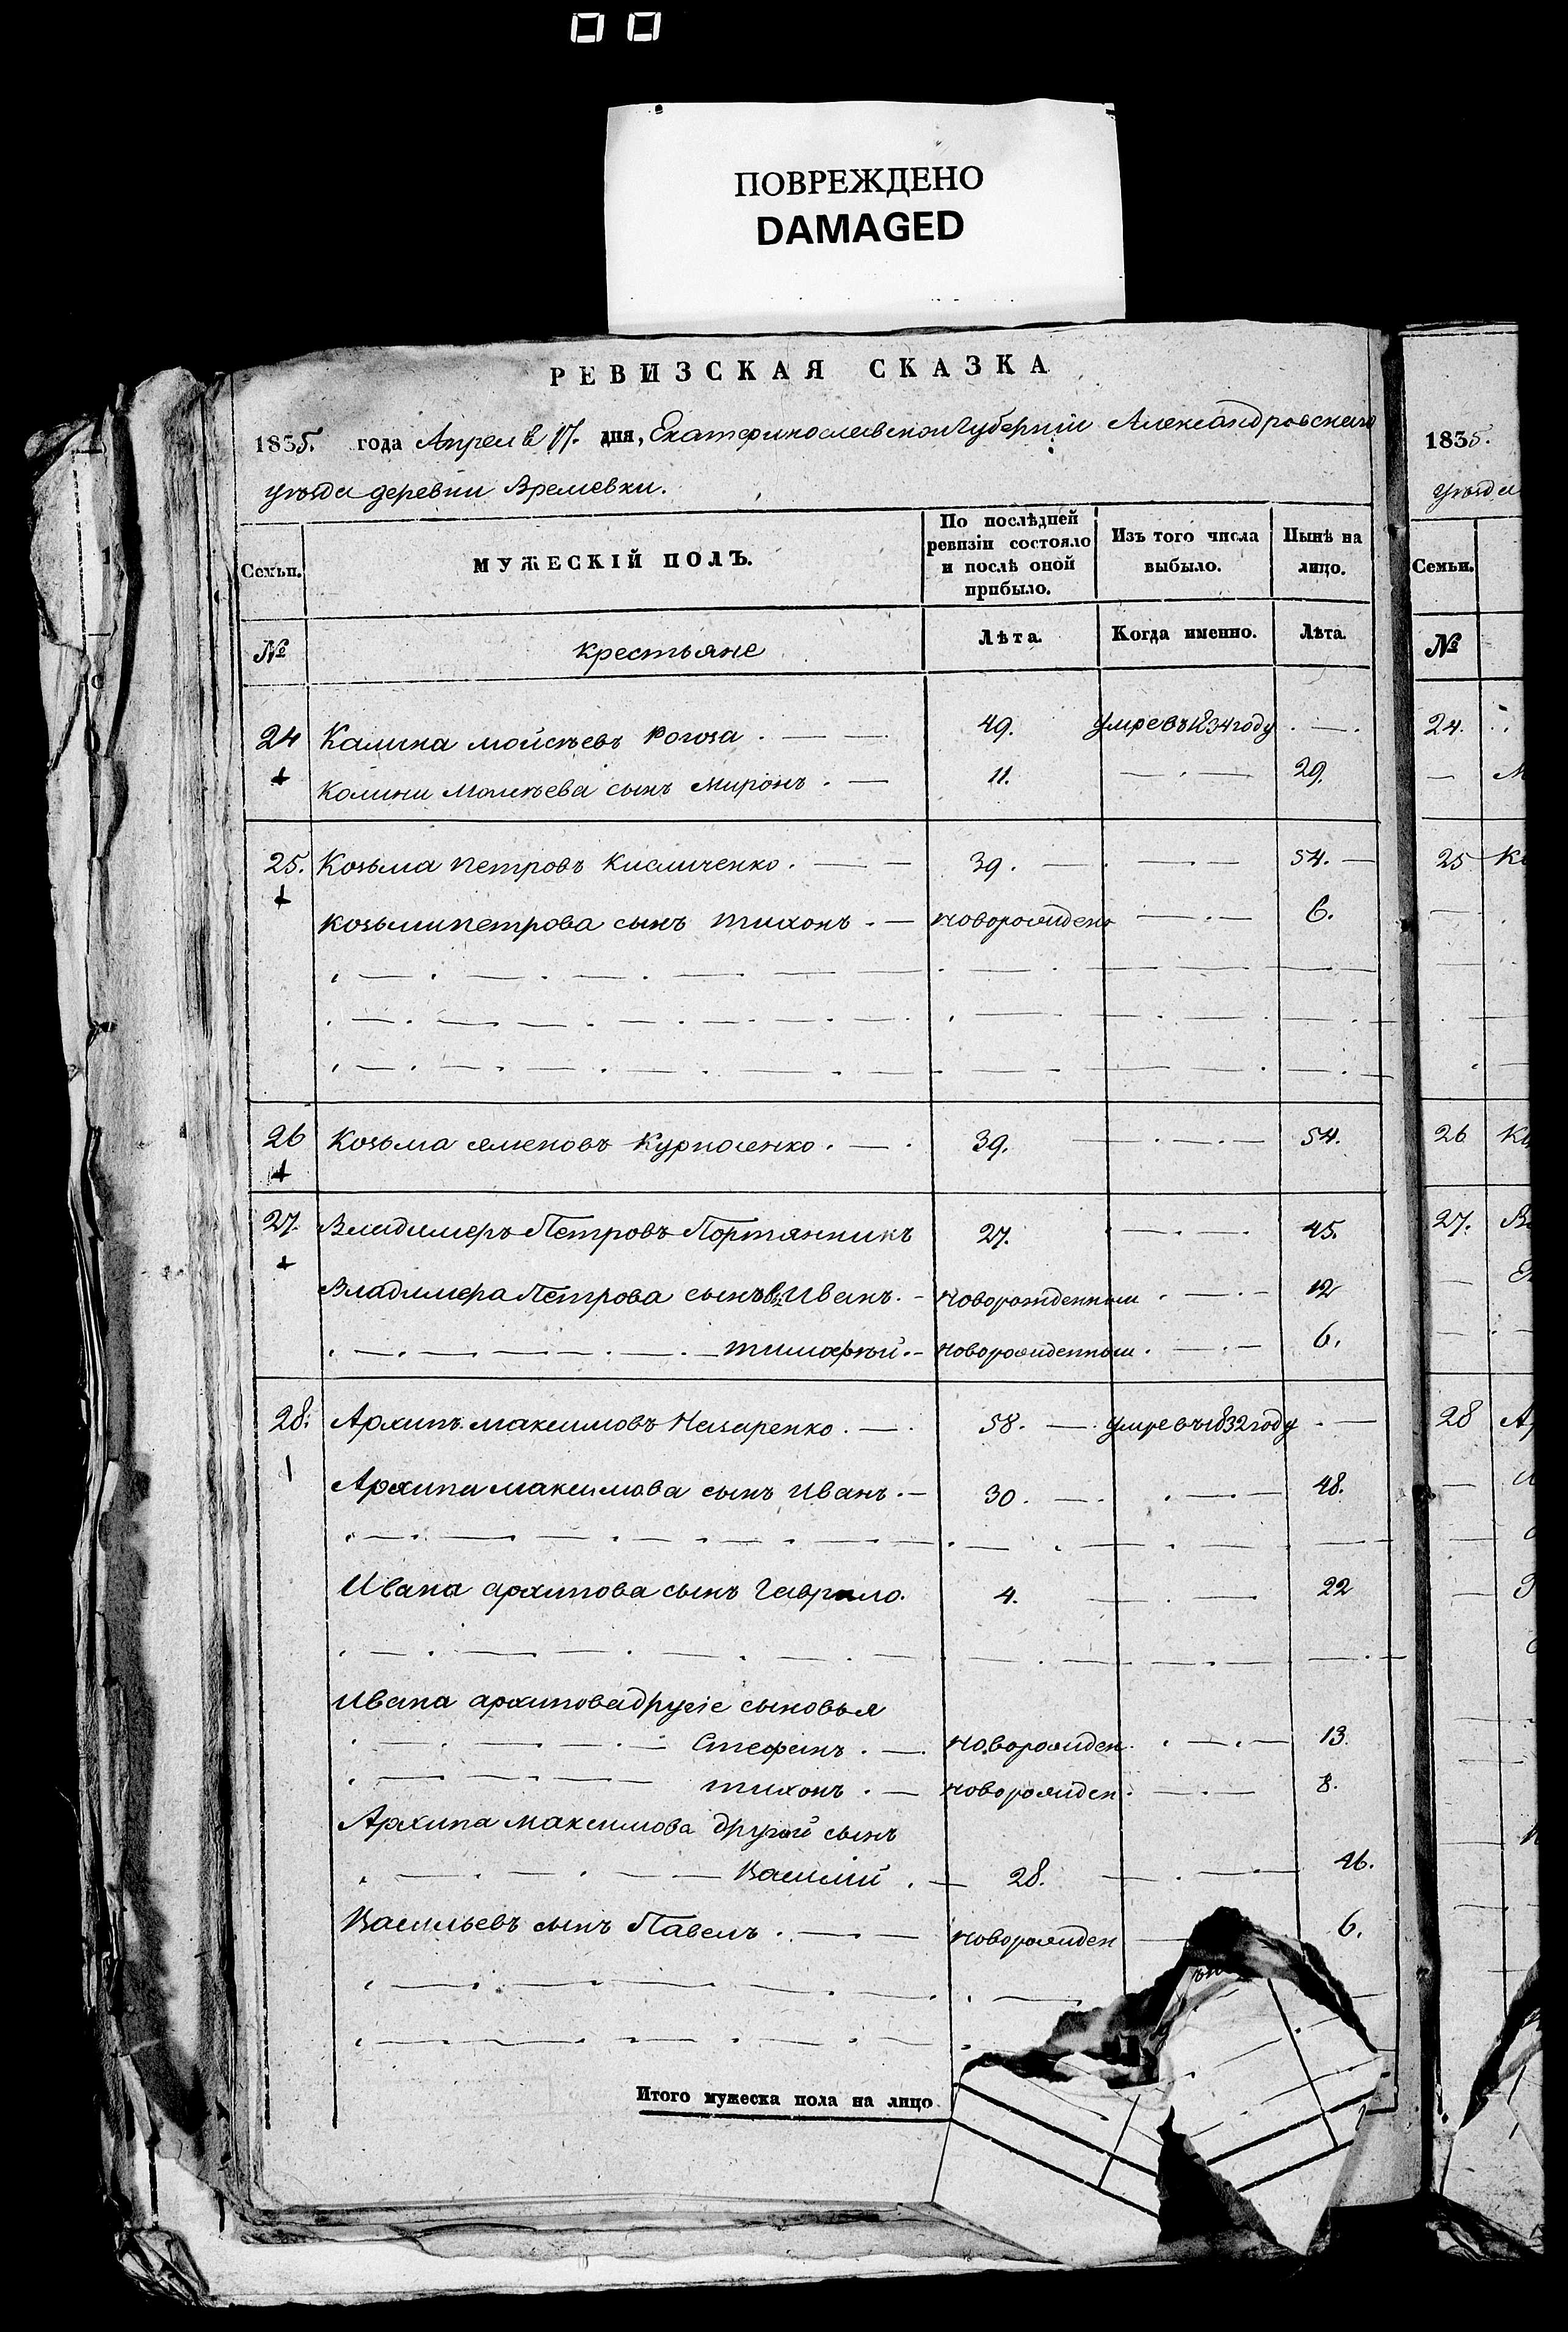 ПОВРЕЖДЕНО
DAMAGED
РЕВИЗСКАЯ СКАЗКА
1835. года Апреля 17. дня, Екатеринославской Губернии Александровского
уѣзда деревни Времевки.
Семьи. МУЖЕСКІЙ ПОЛЪ. По послѣдней ревизіи состояло и послѣ оной прибыло. Изъ того числа выбыло. Нынѣ на лицо.
№ крестьяне Лѣта. Когда именно. Лѣта.
24 Калина Мойсѣевъ Рогоза . — — 49. умре въ 1834 году . — .
Калини Мойсѣева сынъ Миронъ . — 11. — . — 29.
25. Козьма Петровъ Кисличенко . — — 39. — . — . — 54. —
Козьми Петрова сынъ Тихонъ . — новорожденъ — . — 6.
26 Козьма Семеновъ Курносенко . — . 39. — . — . — 54.
27. Владимеръ Петровъ Портянникъ 27. — . — . 45.
Владимера Петрова сынъ Иванъ . - новорожденныи . — . - 12
тимофѣй . - новорожденныи . — . - 6.
28. Архипъ Максимовъ Назаренко . — . 58. — умре въ 1832 году . —
Архипа Максимова сынъ Иванъ . — 30. — . . — . — 48.
Ивана Архипова сынъ Гаврило. 4. — . — 22
Ивана Архипова другіе сыновья
Стефанъ . — . новорожден . . — . — 13.
тихонъ . — новорожден . — . — 8.
Архипа Максимова другой сынъ
Василій . — 28. — . — . — 46.
Васильевъ сынъ Павелъ . — — новорожден — 6.
Итого мужеска пола на лицо
1835.
уѣзда
Семьи.
№
24.
25
26
27.
28